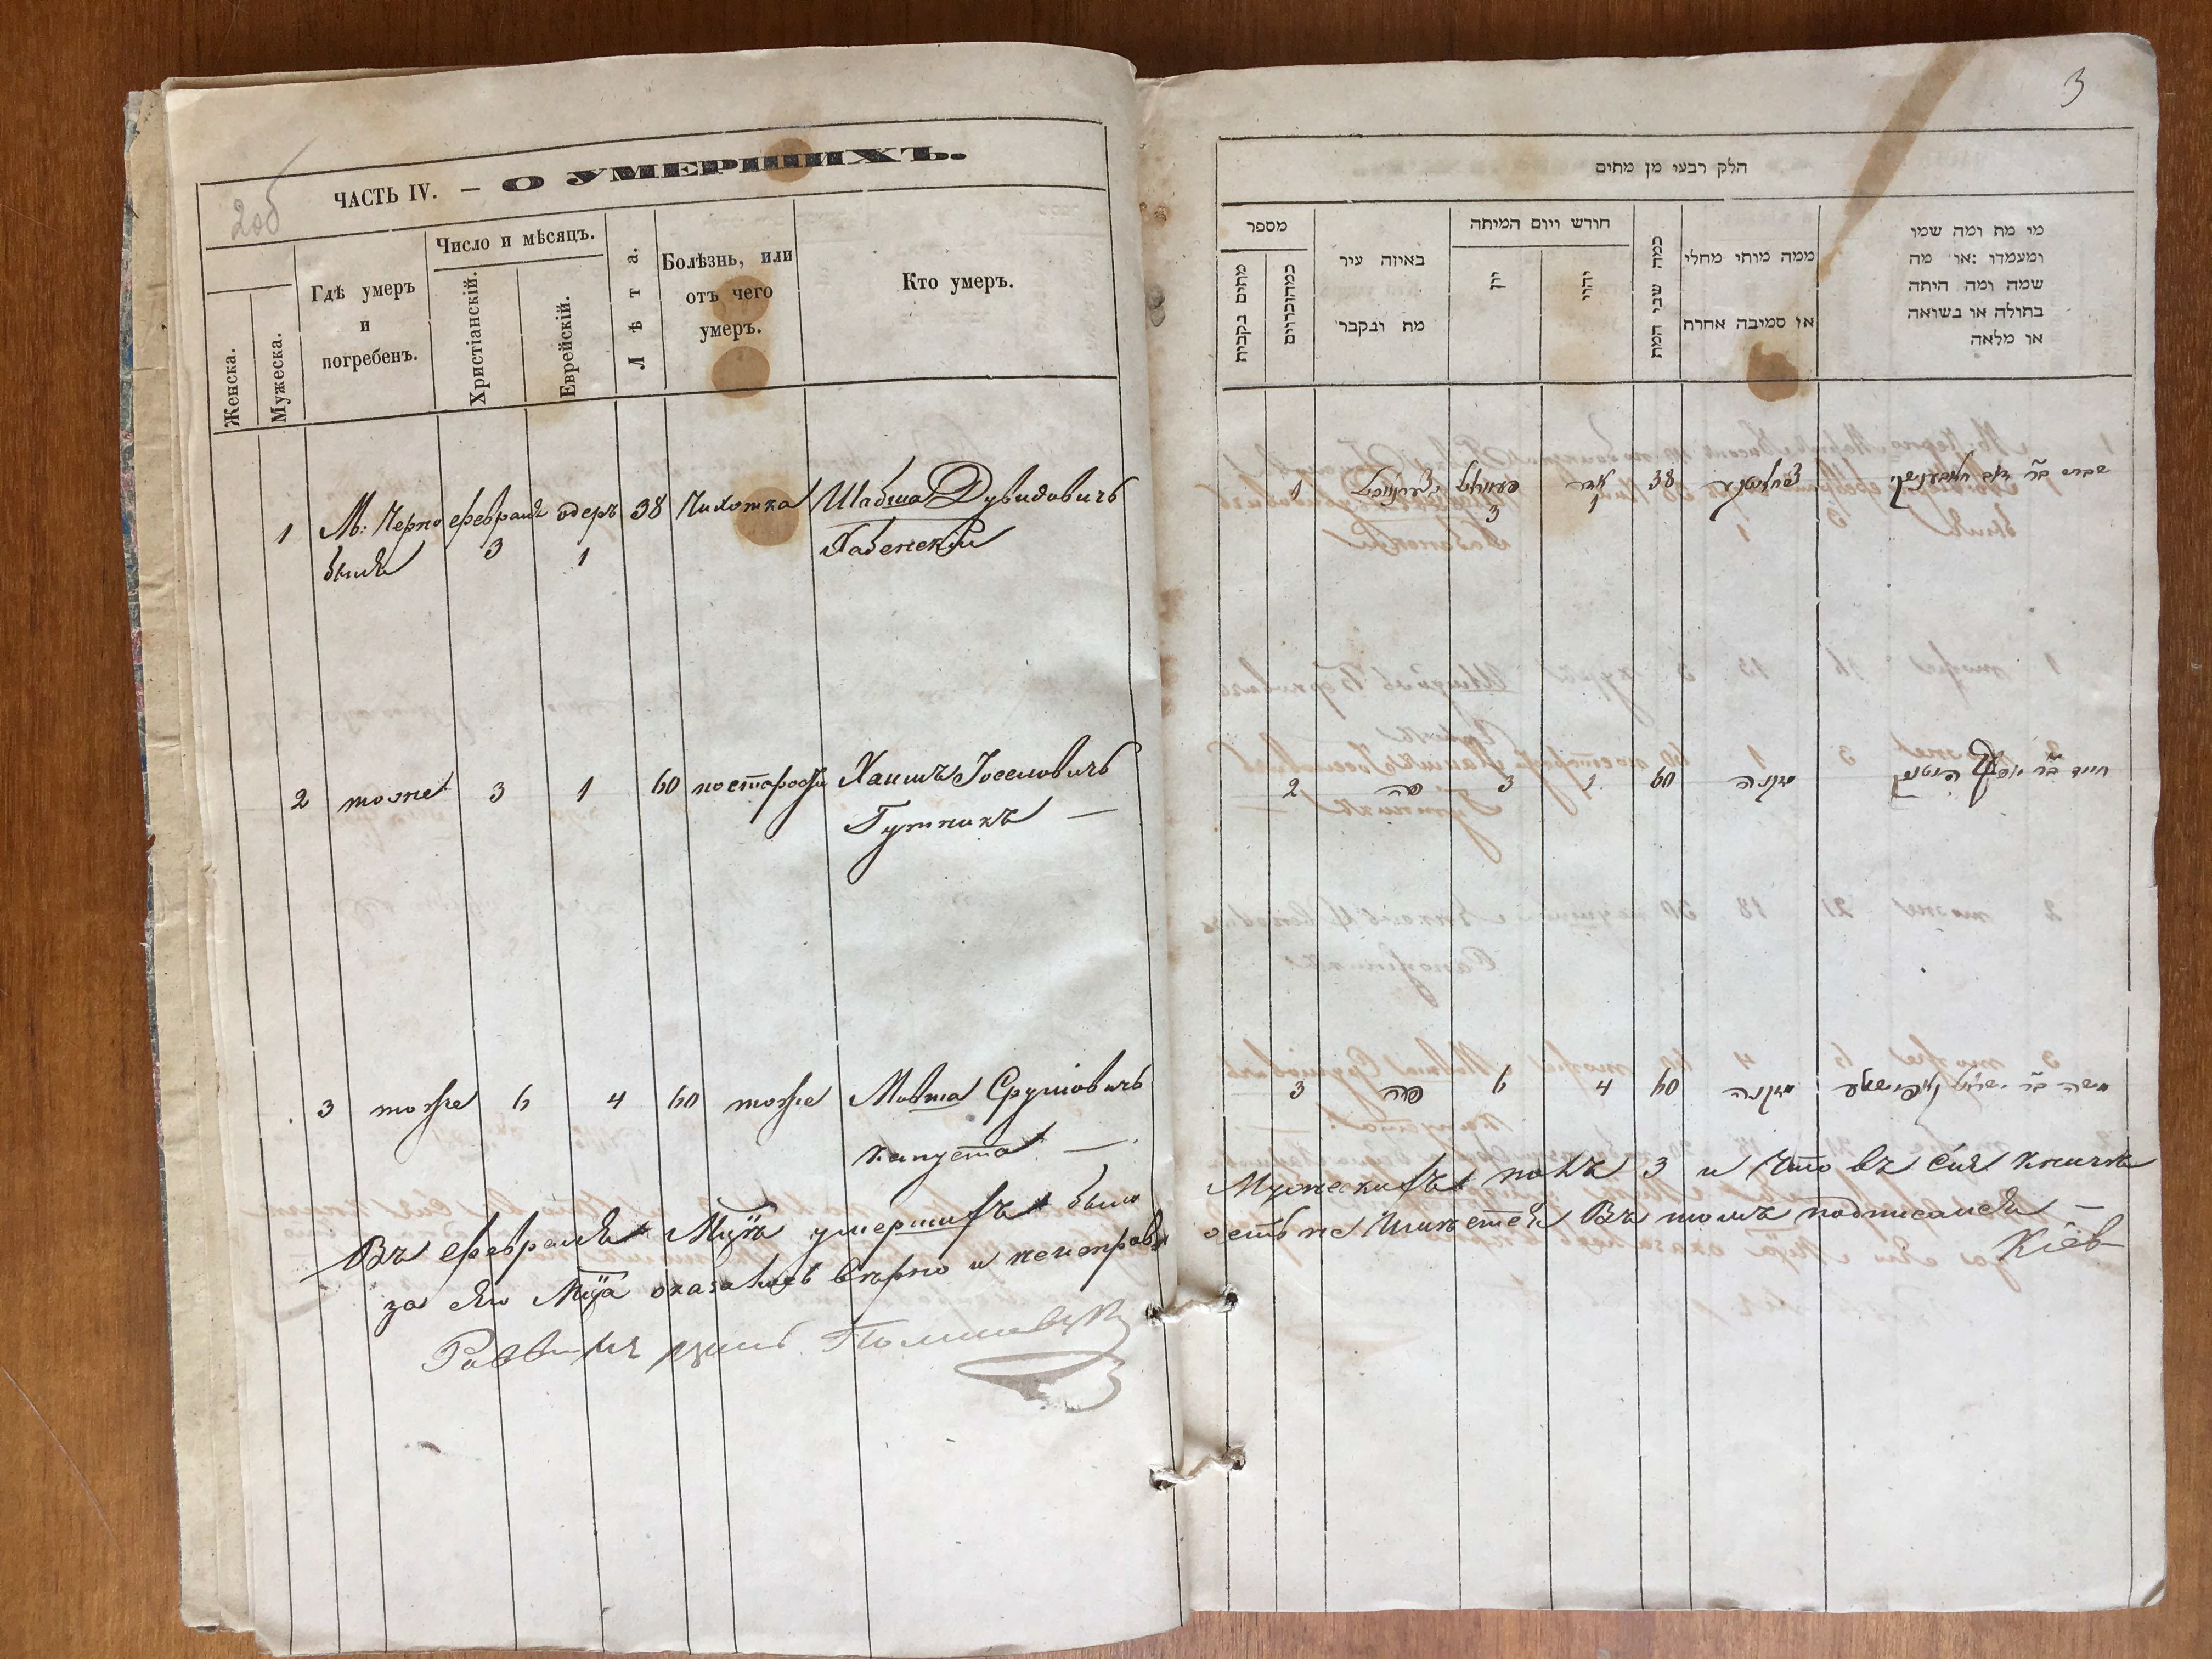 2об
ЧАСТЬ IV. – О УМЕРШИХЪ.
Женска.
Мужеска.
Гдѣ умеръ
и
погребенъ.
Число и мѣсяцъ.
Христіанскій.
Еврейскій.
Лѣта.
Болѣзнь, или
отъ чего
умеръ.
Кто умеръ.
1 М: Черно февраля одеръ 38 Чихотка Шабша Дувидовичъ
быля 3 1 Хабенскій
2 тоже 3 1 60 по старости Хаимъ Іоселовичъ
Гутникъ —
3 тоже 6 4 60 тоже Мовша Сруліовичъ
Капуста —
Въ февралѣ Мцѣ умершихъ было
за сію Мца оказалось вѣрно и неисправ
Раввинъ
3
הלק רבעי מן מתים
מספר
מתים בקבית
במהוכרים
באיזה עיר
מת ובקבר
חורש ויום המיתה
יון
יהוי
כמה שבי המת
ממה מותי מחלי
או סמיבה אחרת
מי מת ומה שמו
ומעמדו :או מה
שמה ומה היתה
בתולה או בשואה
או מלאה
1 3 1 38
2 פה 3 1 60 מזקנה
3 פה 6 4 60 מזקנה משה ב״ר ישראל
Мужескихъ полъ 3 и что въ сія книгѣ
ость не имѣется Въ томъ подписался —
Кіев